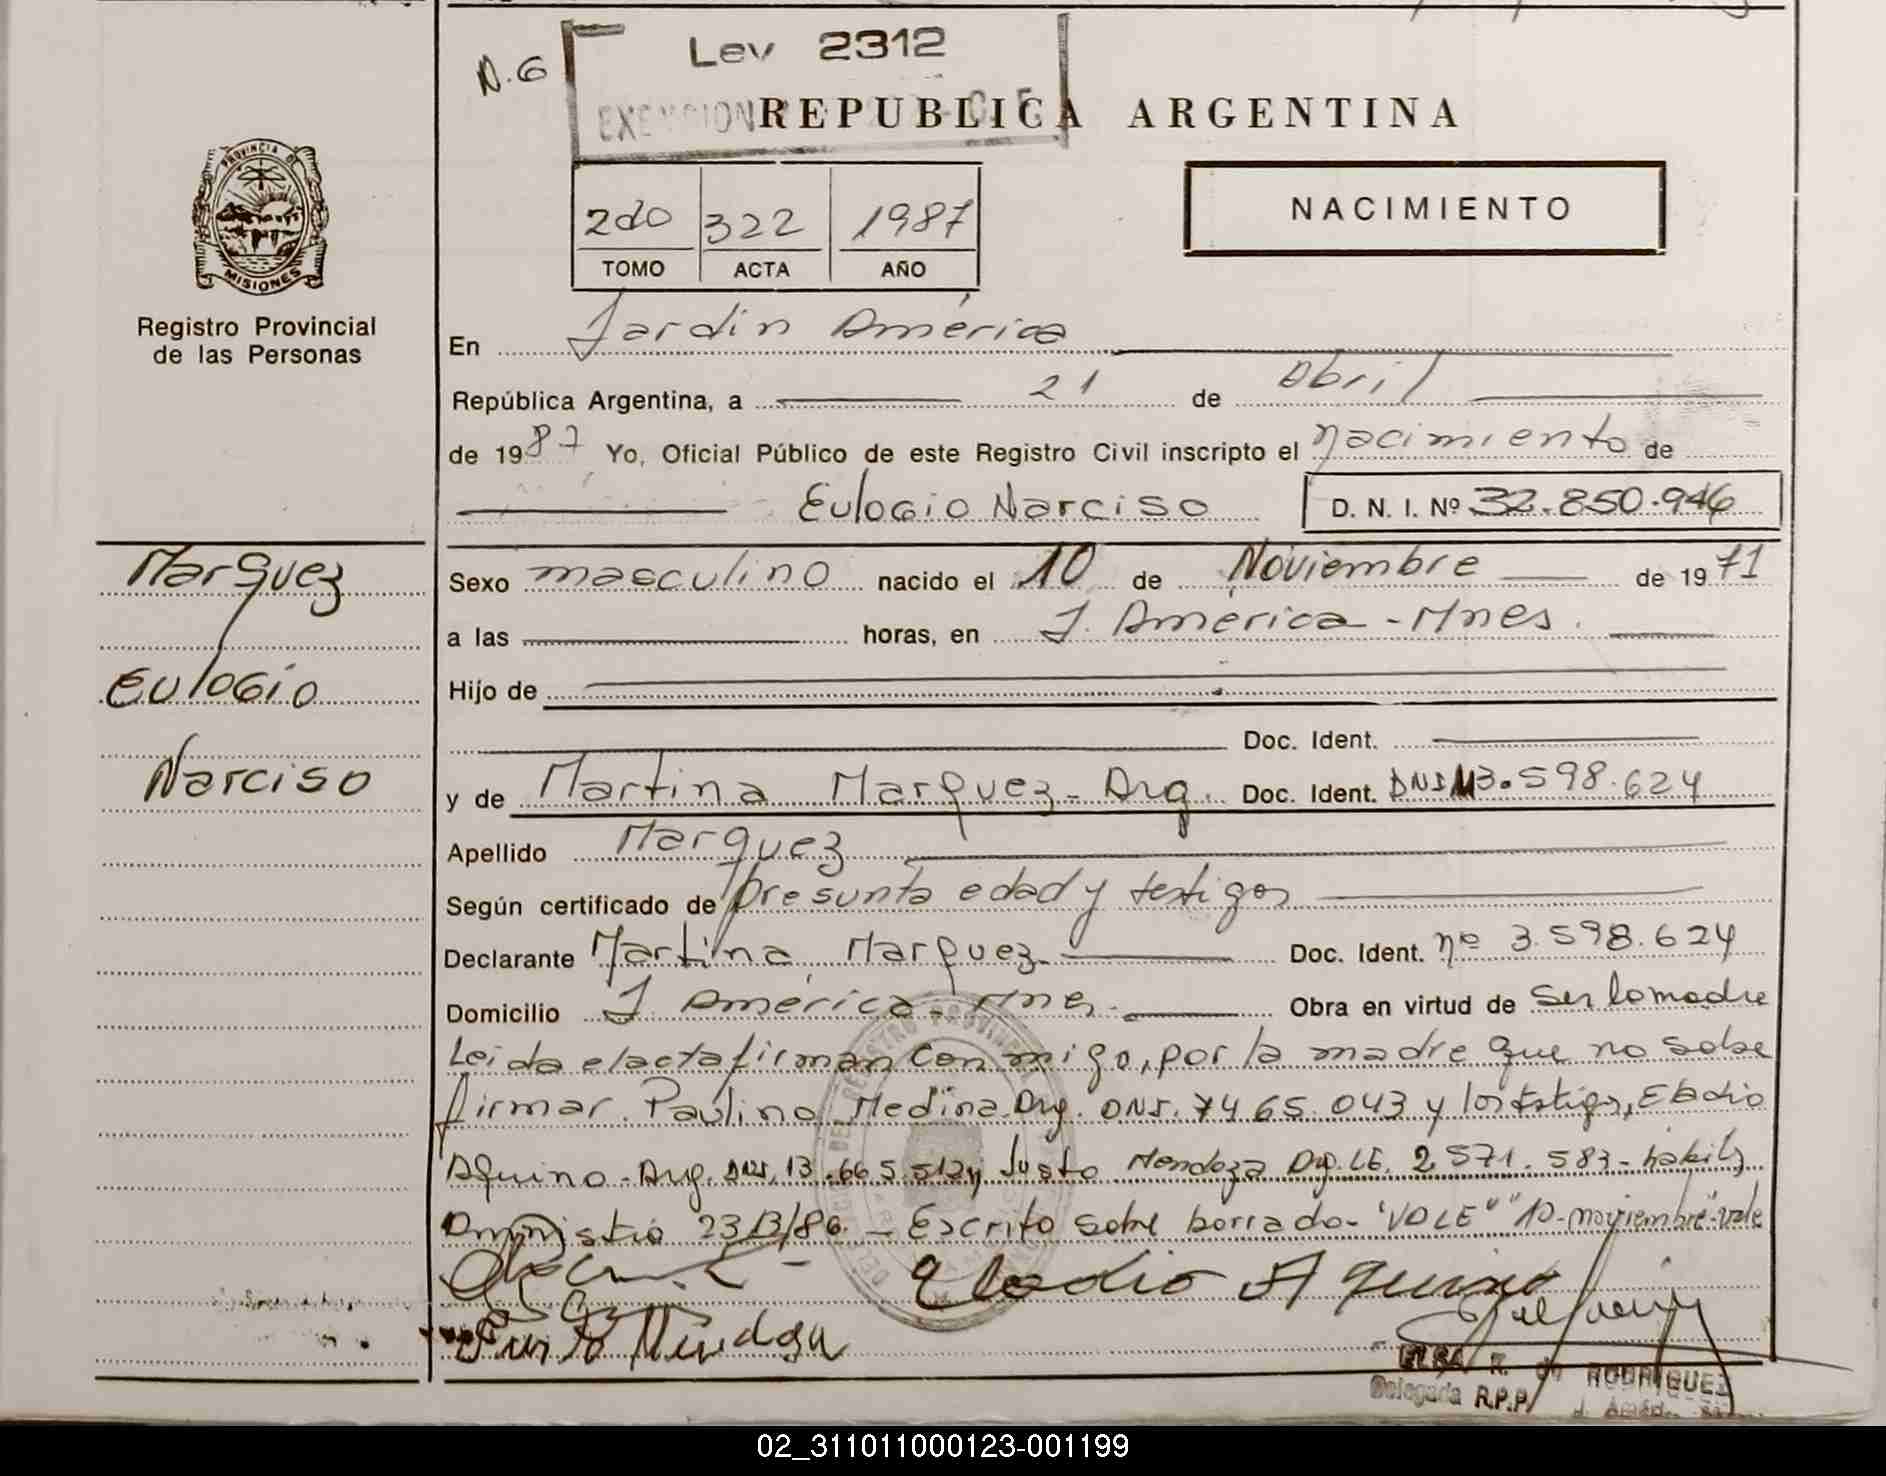 N.6
Ley 2312
EXENCION
REPUBLICA ARGENTINA
2do 322 1987
TOMO ACTA AÑO
NACIMIENTO
PROVINCIA DE
MISIONES
Registro Provincial
de las Personas
En Jardín América
República Argentina, a 21 de Abril
de 1987 Yo, Oficial Público de este Registro Civil inscripto el nacimiento de
Eulogio Narciso D. N. I. Nº 32.850.946
Marquez
Eulogio
Narciso
Sexo masculino nacido el 10 de Noviembre de 1971
a las horas, en J. América - Mnes.
Hijo de
Doc. Ident.
y de Martina Marquez - Arg. Doc. Ident. DNI 3.598.624
Apellido Marquez
Según certificado de presunta edad y testigos
Declarante Martina Marquez Doc. Ident. nº 3.598.624
Domicilio J. América - Mnes. Obra en virtud de Ser la madre
Leida el acta firman con migo, por la madre que no sabe
firmar. Paulino Medina Arg. DNI. 7465.043 y los testigos, Eladio
Aquino - Arg. DNI. 13.665.512 y Justo Mendoza Arg. LE. 2.571.583 - habil y
23/3/86. - Escrito sobre borrado - "VALE" "10 - noviembre" - vale
Eladio Aquino
Justo Mendoza
ELSA R. de RODRIGUEZ
Delegada R.P.P.
02_311011000123-001199